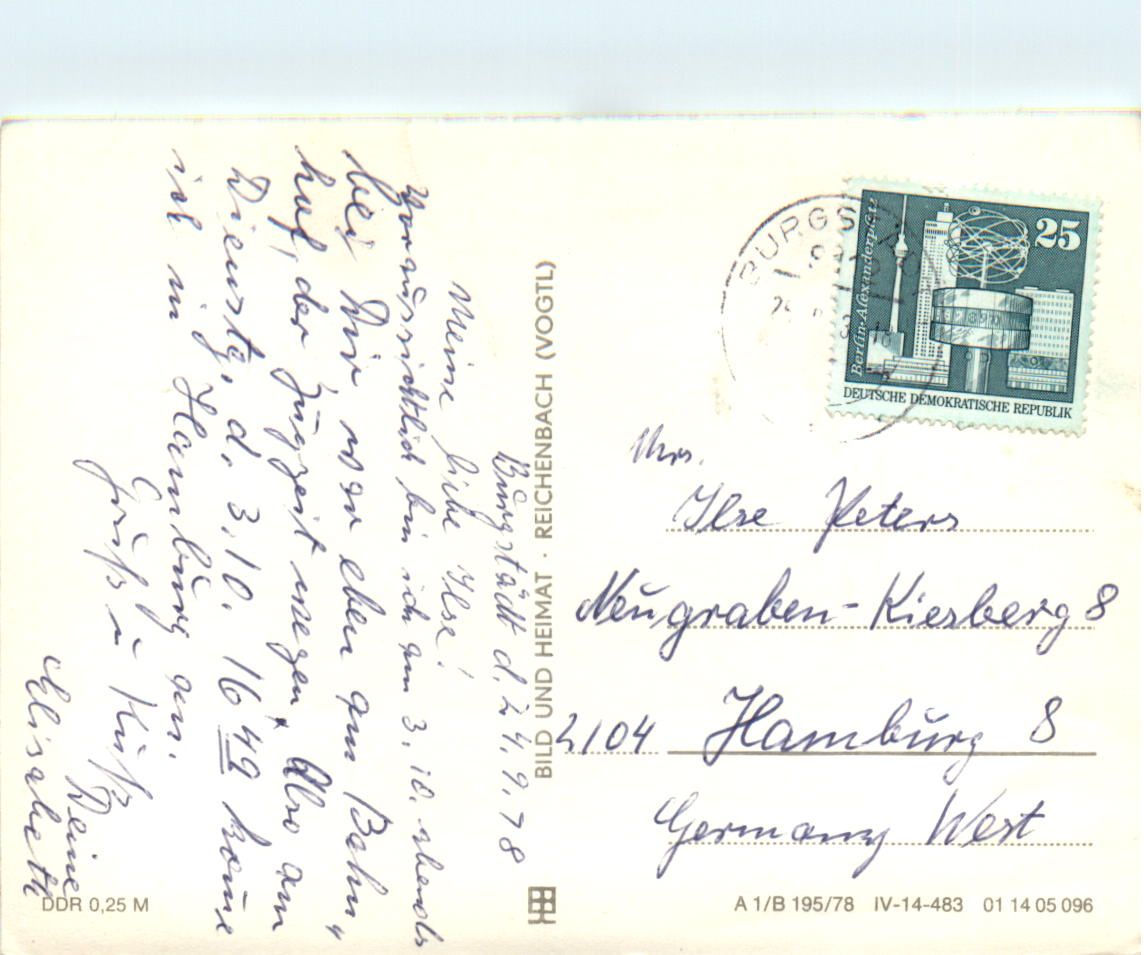 Burgstädt d. 24.9.78
Meine liebe Ilse!
Voraussichtlich bin ich am 3.10. abends
bei Dir, war eben am Bahn„
hof, der Zugzeit wegen. Also am
Dienstg. d. 3.10. 16 49 komme
ich in Hamburg an.
Gruß u Kuß
Deine
Elisabeth
BILD UND HEIMAT · REICHENBACH (VOGTL)
DDR 0,25 M
BURGSTÄDT
25
Berlin-Alexanderplatz
DEUTSCHE DEMOKRATISCHE REPUBLIK
Mrs.
Ilse Peters
Neugraben-Kiesberg 8
2104 Hamburg 8
Germany West
A 1/B 195/78 IV-14-483 01 14 05 096